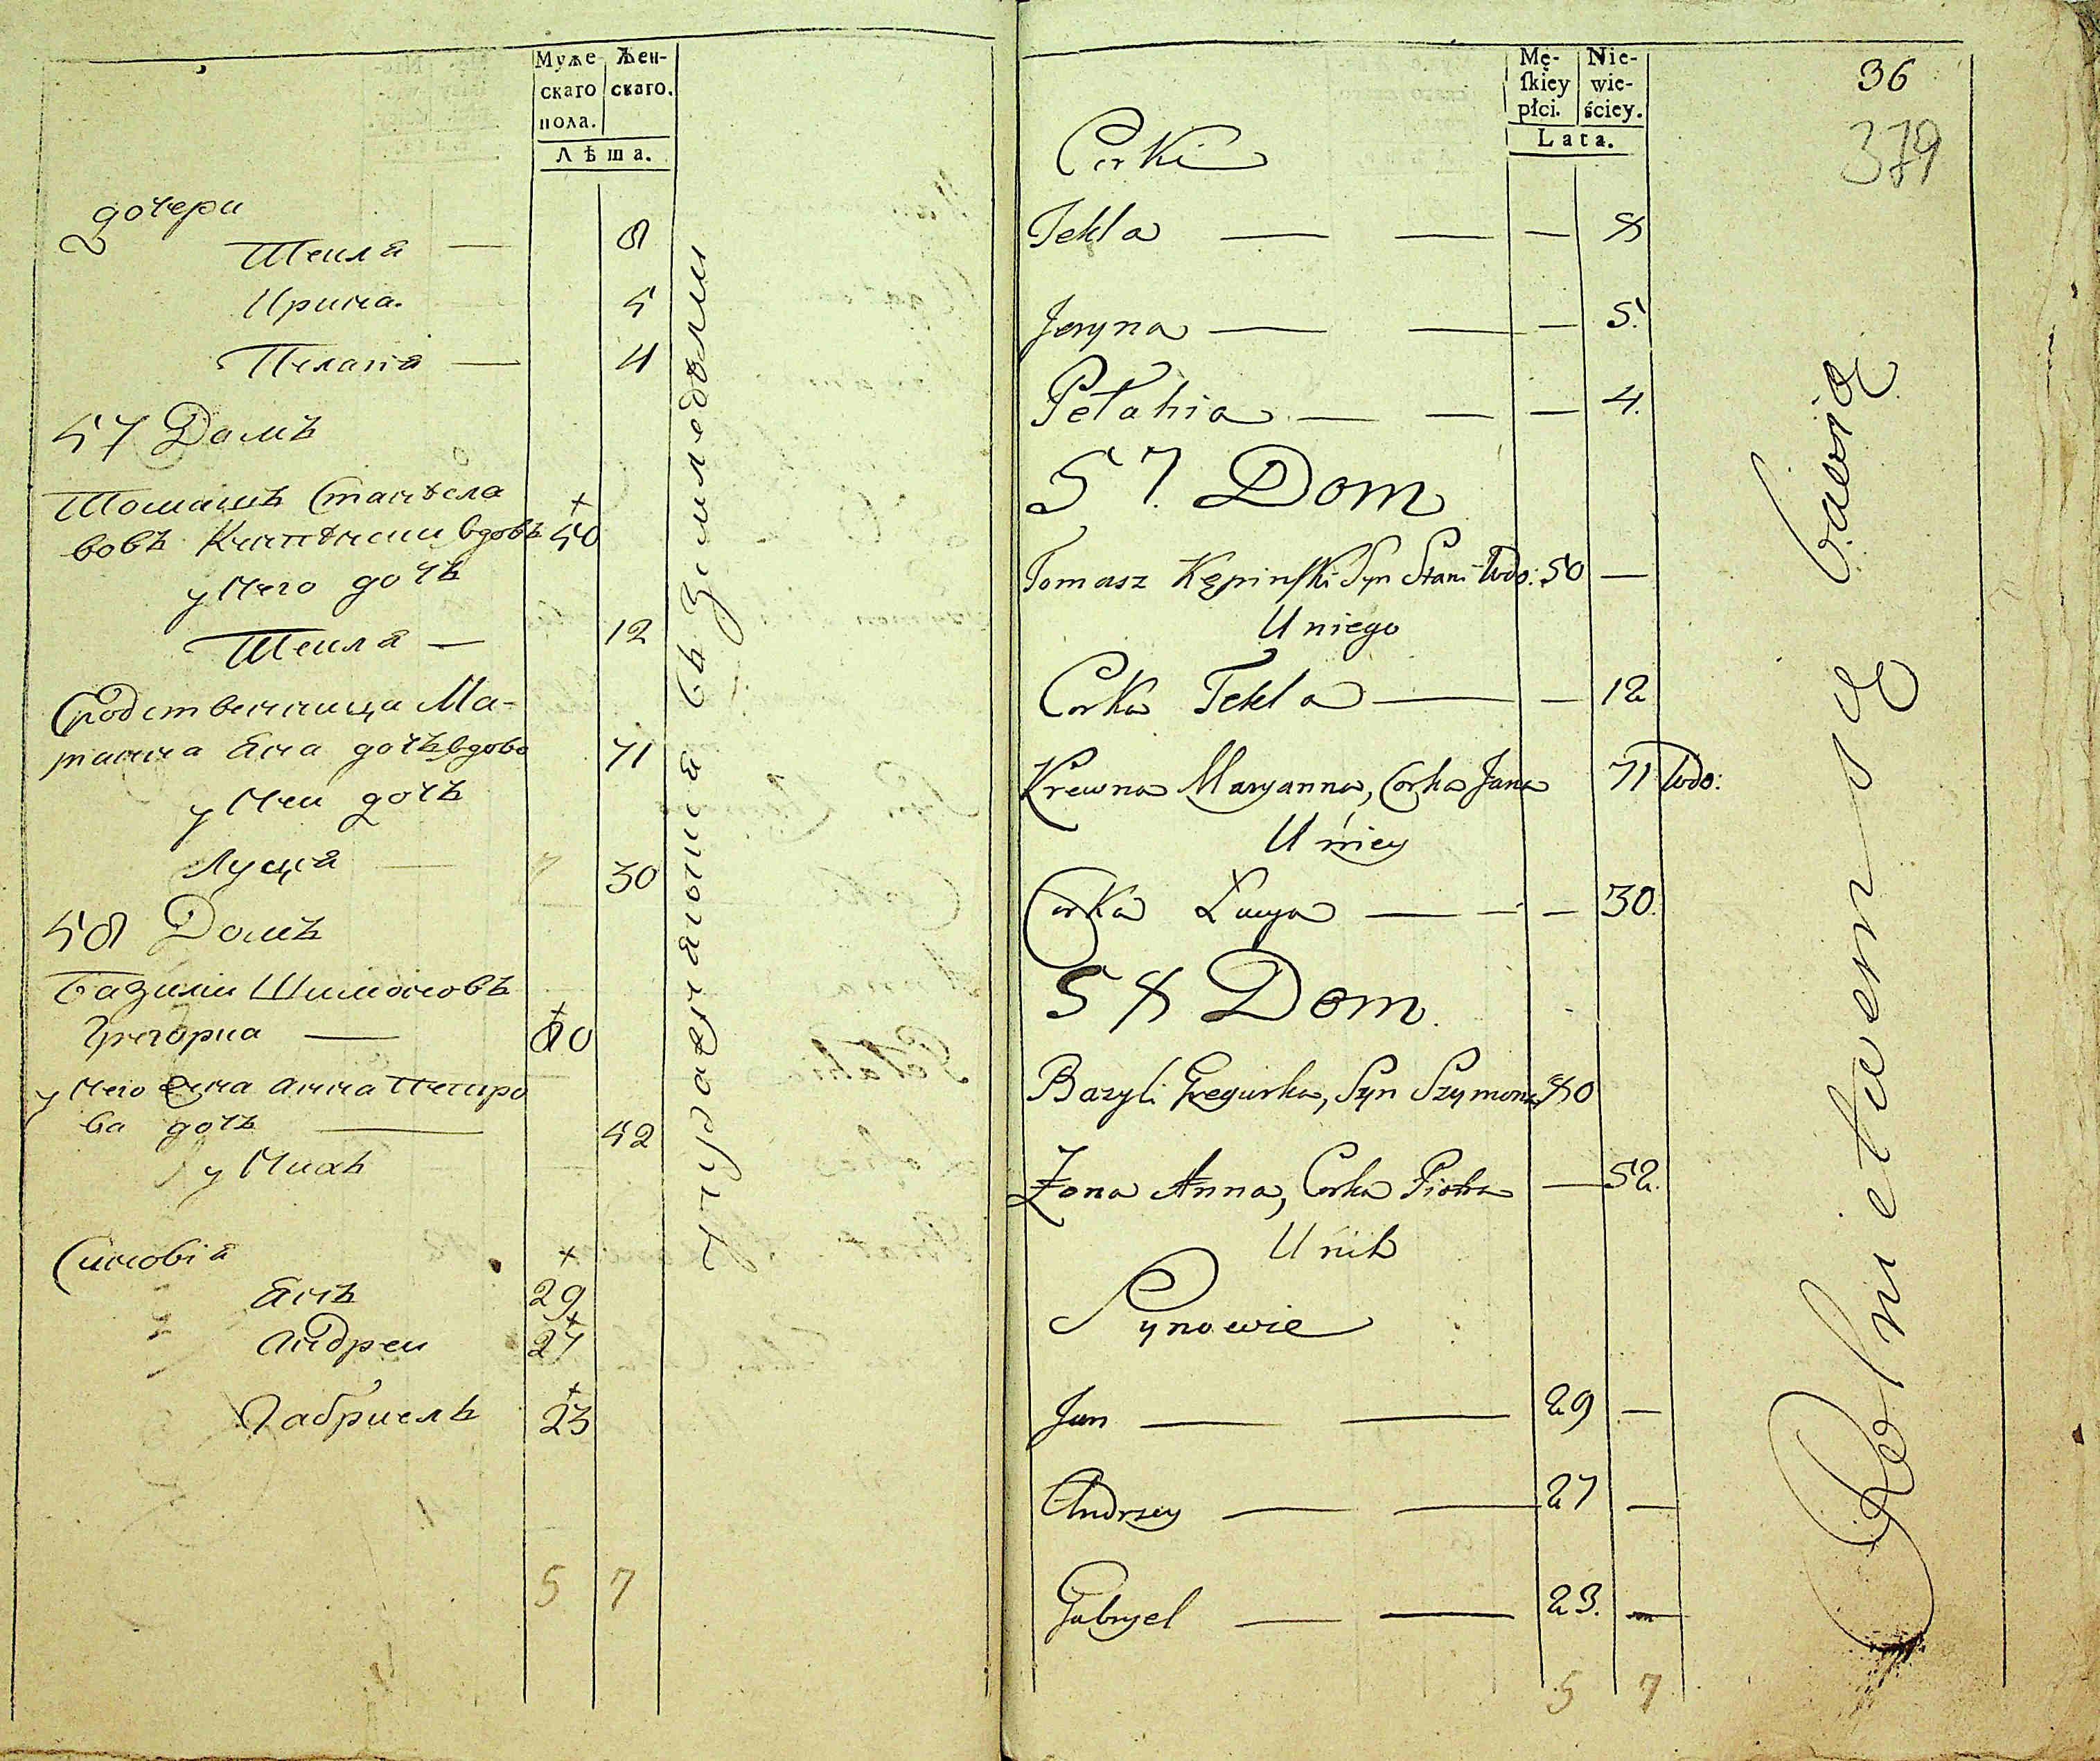 Муже
скаго
пола.
Жен-
скаго.
Лѣта.
дочери
Текля — 8
Ирина. 5
Пелагія — 4
57 Домъ
Томашъ Станѣсла
вовъ Кемпѣнски вдовъ + 50
у него дочъ
Текля — 12
Сродственница Ма-
рянна Яна дочъ вдова 71
у неи дочъ
Луція — 30
58 Домъ
Базили Шимоновъ
Грегорка — + 80
у него жена анна Петро
ва дочъ — 52
у нихъ
Синовія
Янъ + 29
Андреи + 27
Габриель + 23
5 7
упражняются въ земледѣліи
Mę-
ſkiey
płci.
Nie-
wie-
ściey.
Lata.
36
379
Corki
Tekla — — — 8
Jeryna — — — 5.
Pelahia — — — 4.
57. Dom
Tomasz Kępinſki Syn Stani: Wdo: 50 —
U niego
Corka Tekla — — 12
Krewna Maryanna, Corka Jana 71 Wdo:
U niey
Corka Łucya — — — 30.
58 Dom.
Bazyli Gregurka, Syn Szymona 80
Żona Anna, Corka Piotra — 52.
U nich
Synowie
Jan — — 29 —
Andrzey — — 27 —
Gabryel — — 23. —
5 7
Rolnictwem się bawią